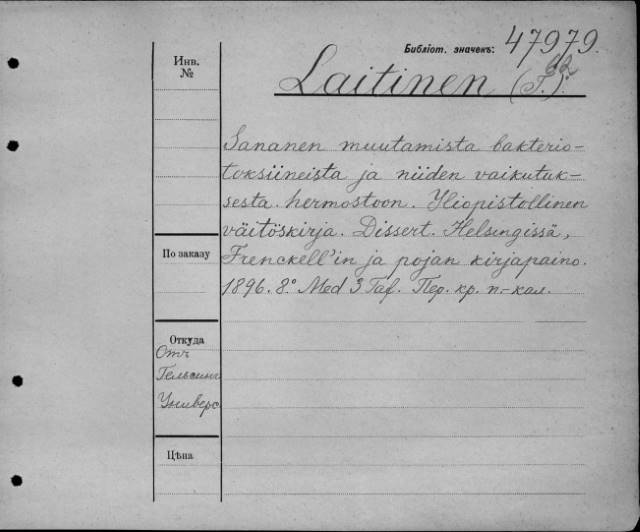 Библіот. значекъ: 47979.
Инв. №
Laitinen (T.).
Sananen muutamista bakterio-
toksiineista ja niiden vaikutuk-
sesta hermostoon. Yliopistollinen
väitöskirja. Dissert. Helsingissä,
По заказу
Frenckell'in ja pojan kirjapaino.
1896. 8.° Med 3 Taf. Пер. кр. п.-кал.
Откуда
Отъ
Гельсинг
Универс
Цѣна